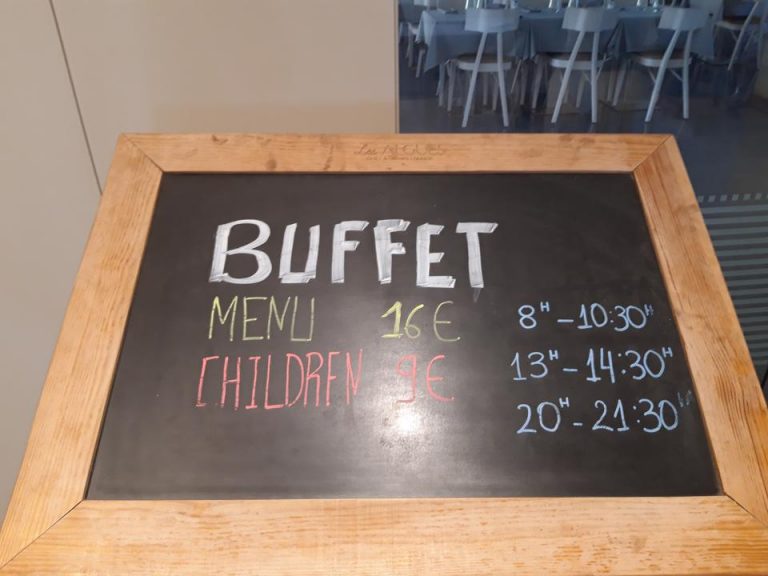 Les ALGUES
BUFFET
MENU 16€
CHILDREN 9€
8H-10:30H
13H-14:30H
20H-21:30H